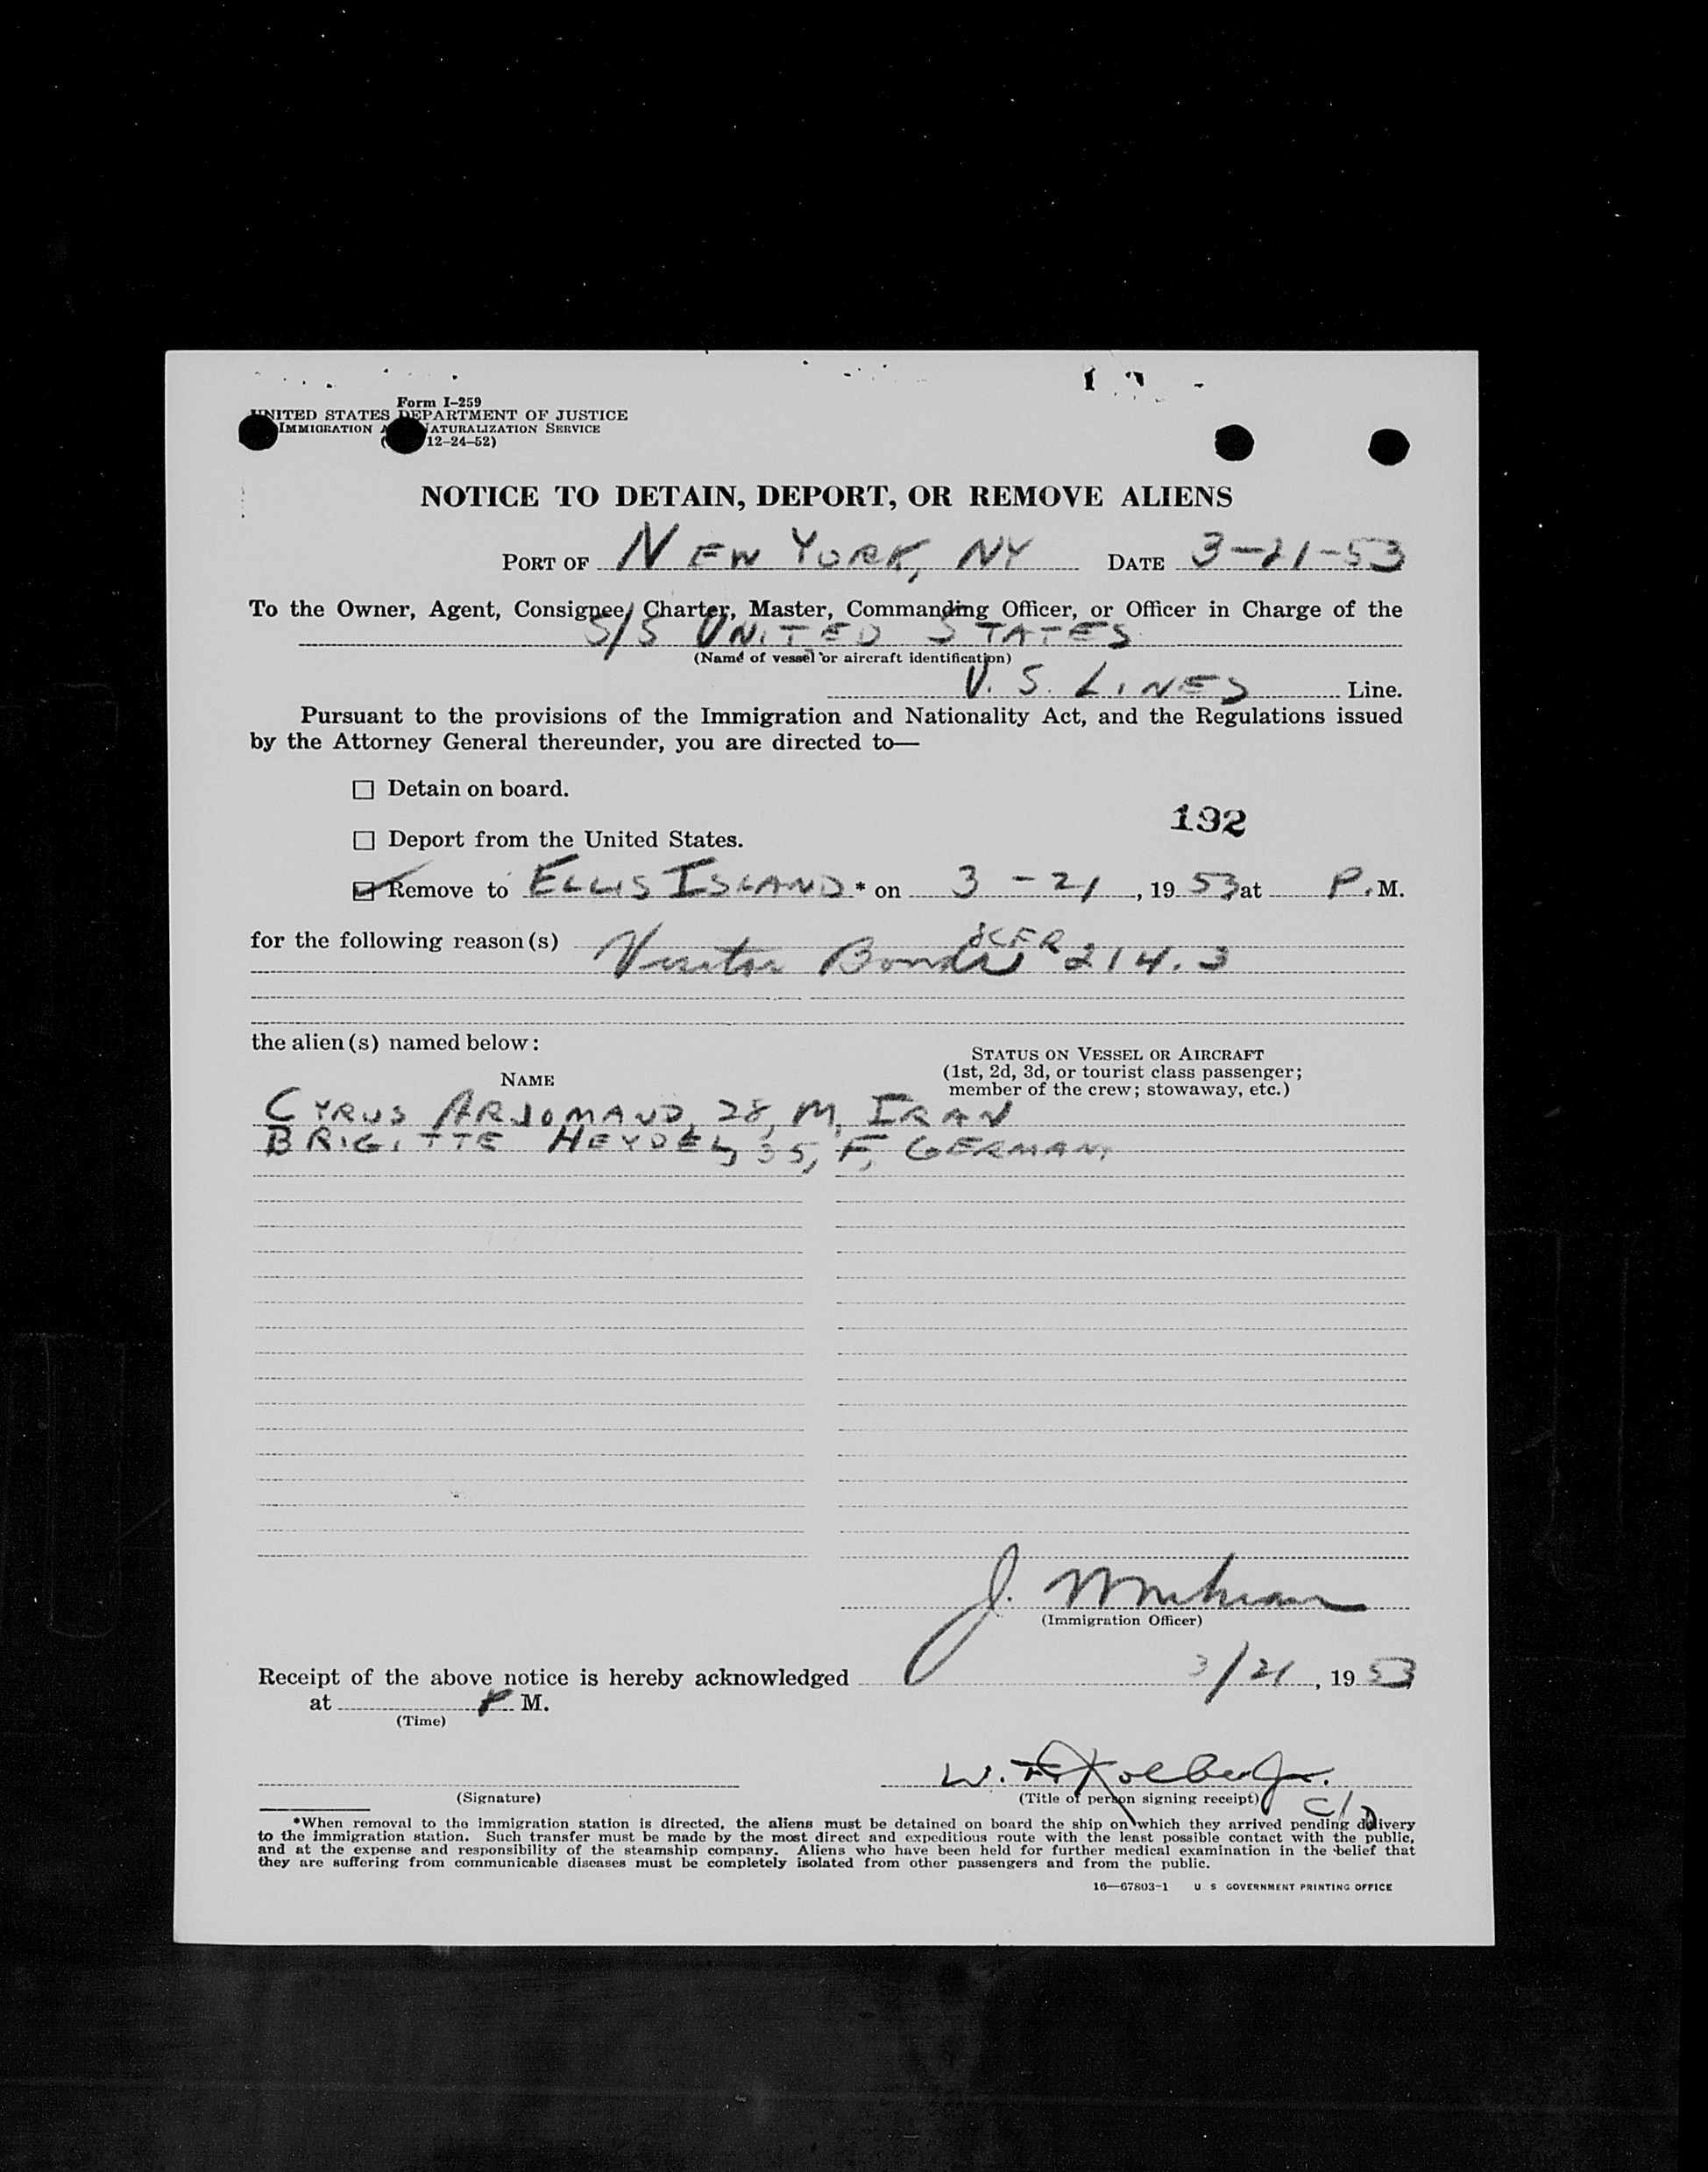 Form I-259
UNITED STATES DEPARTMENT OF JUSTICE
IMMIGRATION NATURALIZATION SERVICE
( 12-24-52)
NOTICE TO DETAIN, DEPORT, OR REMOVE ALIENS
PORT OF NEW YORK, NY DATE 3-21-53
To the Owner, Agent, Consignee, Charter, Master, Commanding Officer, or Officer in Charge of the
S/S UNITED STATES
(Name of vessel or aircraft identification)
U. S. LINES Line.
Pursuant to the provisions of the Immigration and Nationality Act, and the Regulations issued
by the Attorney General thereunder, you are directed to—
☐ Detain on board.
192
☐ Deport from the United States.
☑ Remove to ELLIS ISLAND * on 3-21, 1953 at P. M.
for the following reason(s)
Visitor Bonds 8CFR 214.3
the alien(s) named below:
STATUS ON VESSEL OR AIRCRAFT
(1st, 2d, 3d, or tourist class passenger;
member of the crew; stowaway, etc.)
NAME
CYRUS ARJOMAND, 28, M, IRAN
BRIGITTE HEYDEL, 35, F, GERMANY
J.
(Immigration Officer)
Receipt of the above notice is hereby acknowledged 3/21, 1953
at P M.
(Time)
W.
(Signature)
(Title of person signing receipt)
*When removal to the immigration station is directed, the aliens must be detained on board the ship on which they arrived pending delivery
to the immigration station. Such transfer must be made by the most direct and expeditious route with the least possible contact with the public,
and at the expense and responsibility of the steamship company. Aliens who have been held for further medical examination in the belief that
they are suffering from communicable diseases must be completely isolated from other passengers and from the public.
16—67803-1 U S GOVERNMENT PRINTING OFFICE